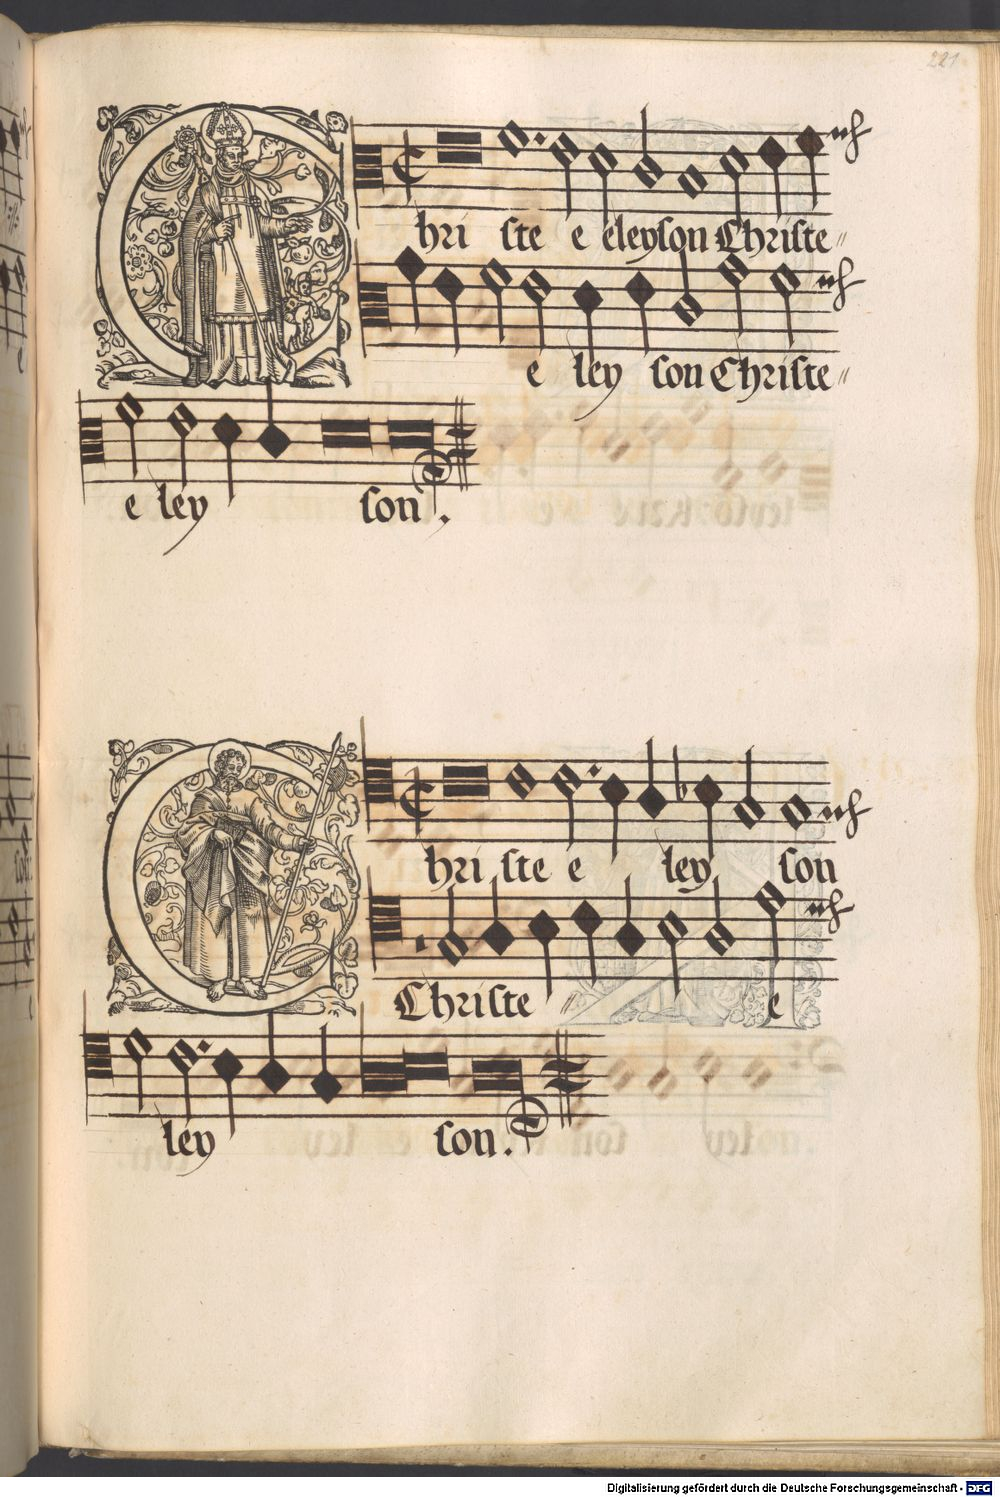 221
Christe e eleyson Christe
e ley son Christe
e ley son.
Christe e ley son
Christe e
ley son.
Digitalisierung gefördert durch die Deutsche Forschungsgemeinschaft - DFG